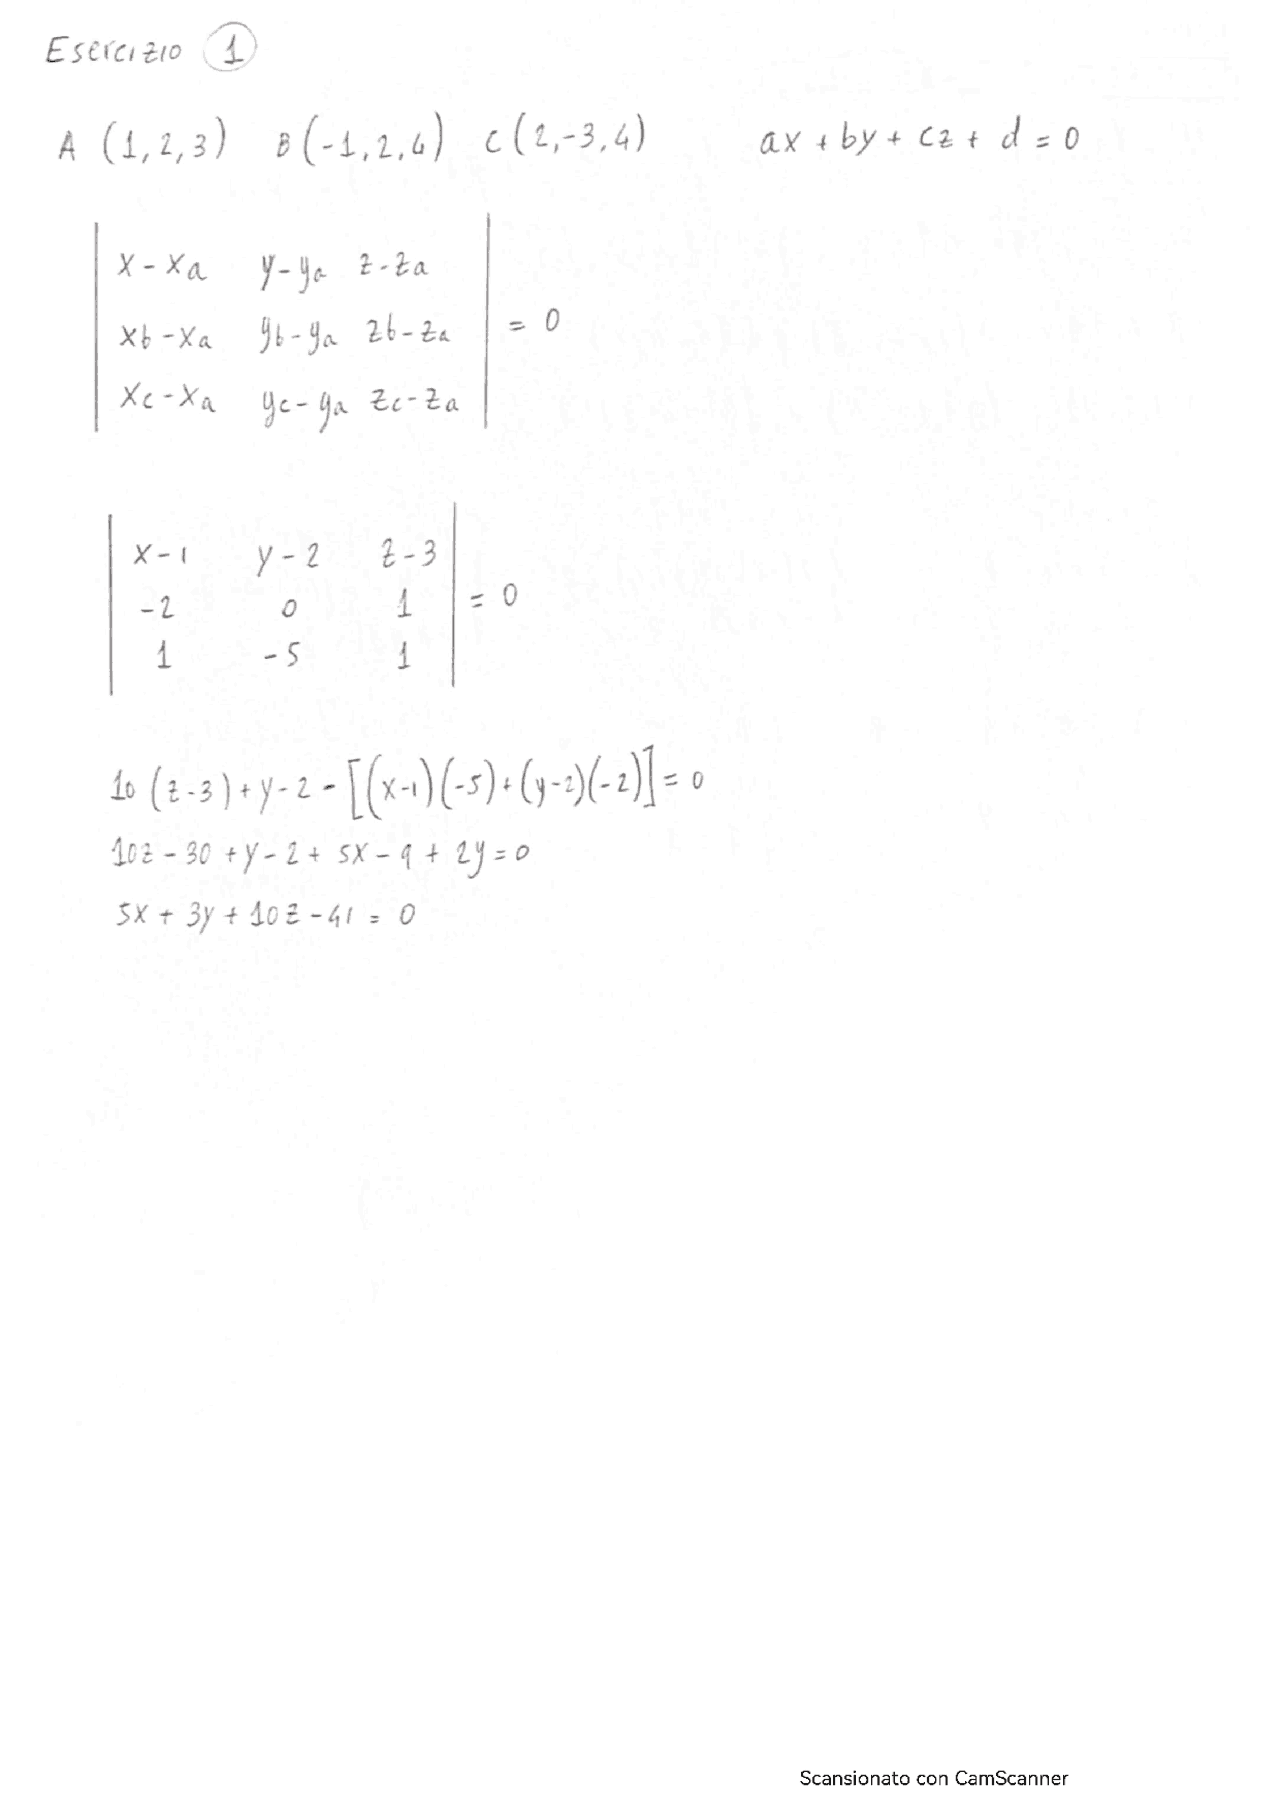 Esercizio 1
A (1,2,3) B(-1,2,4) C(2,-3,4) ax + by + cz + d = 0
x-xa y-ya z-za
xb-xa yb-ya zb-za = 0
xc-xa yc-ya zc-za
x-1 y-2 z-3
-2 0 1 = 0
1 -5 1
10 (z-3)+y-2-[(x-1)(-5)+(y-2)(-2)]=0
10z-30+y-2+5x-9+2y=0
5x+3y+10z-41=0
Scansionato con CamScanner